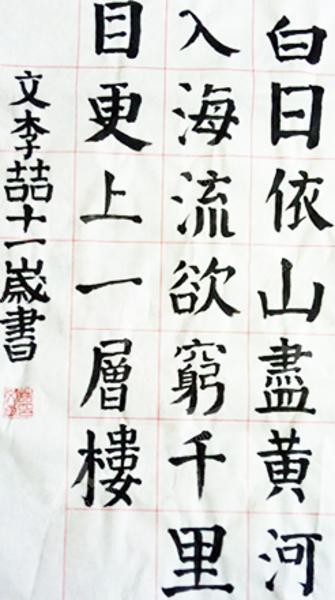 白日依山盡黄河
入海流欲窮千里
目更上一層樓
文李喆十一歲書